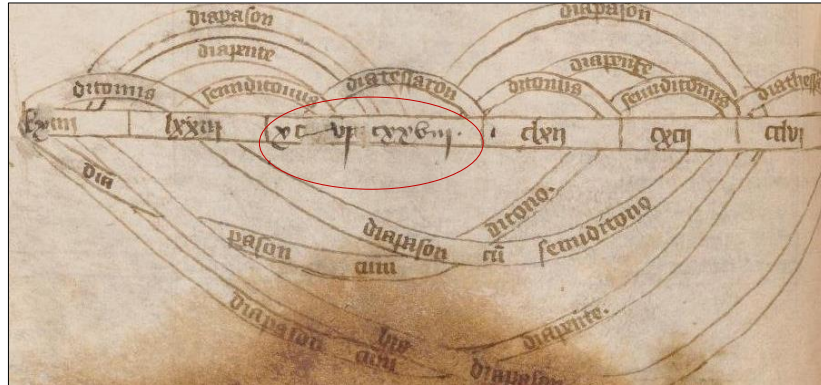 diapason diapason
diapente diapente
ditonus semiditonus diatessaron ditonus semiditonus diathess
lxiiii lxxxi xcvi cxxviii clxii cxcii cclvi
dia
pason cum ditono.
diapason cū semiditono
diapason bis diapente.
cum diapason